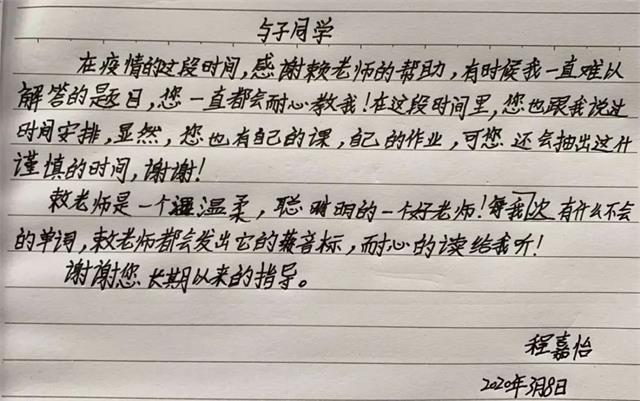 与子同学
在疫情的这段时间,感谢赖老师的帮助,有时候我一直难以
解答的题目,您一直都会耐心教我!在这段时间里,您也跟我说过
时间安排,显然,您也有自己的课,自己的作业,可您还会抽出这什
谨慎的时间,谢谢!
敕老师是一个温柔,聪明的一个好老师!每次我有什么不会
的单词,敕老师都会发出它的音标,耐心的读给我听!
谢谢您长期以来的指导。
程嘉怡
2020年3月8日